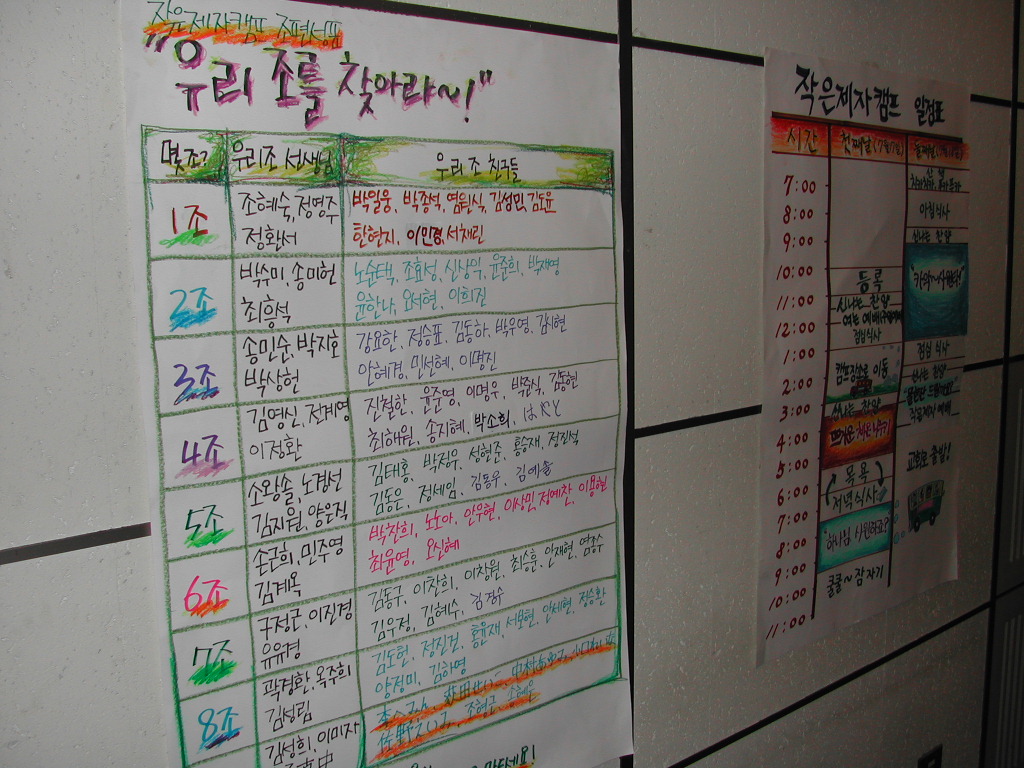 작은제자캠프 조편성표
"우리 조를 찾아라~!"
몇조? 우리조 선생님 우리 조 친구들
1조 조혜숙, 정명주 박일웅, 박종석, 염원식, 김성민, 김도윤
정환서 한현지, 이민경, 서채린
2조 박수미, 송미헌 노순택, 조효성, 신상익, 윤준희, 박재영
최항석 윤한나, 오서현, 이희진
3조 송민순, 박지호 강요한, 정승표, 김동하, 박우영, 김지현
박상헌 안혜경, 민선혜, 이명진
4조 김영신, 전계영 진철한, 윤준영, 이명우, 박준식, 김동현
이정환 최해원, 송지혜, 박소희,
5조 소왕솔, 노경선 김태홍, 박정우, 성현준, 홍승재, 정진석
김지원, 양은직 김동은, 정세임, 김동우, 김예슬
6조 손근희, 민주영 박찬희, 노노아, 안우현, 이상민, 정예찬, 이용현
김계옥 최윤영, 오신혜
7조 구정군, 이진경 김동구, 이찬희, 이창원, 최승훈, 안재현, 염장수
유유경 김우정, 김혜수, 김경수
8조 곽경환, 옥주희 김도현, 정진건, 홍윤재, 서보현, 안세현, 정승환
김성림 양정미, 김하영
김성희, 이미자
조현근, 송혜은
작은제자캠프 일정표
시간 첫째날 둘째날
7:00
8:00 아침식사
9:00 신나는 찬양
10:00 등록
11:00 신나는 찬양
12:00 여는 예배
점심식사
1:00 점심 식사
캠프장으로 이동
2:00 신나는 찬양
3:00 신나는 찬양 작은제자 예배
4:00 뜨거운
5:00 목욕 교회로 출발!
6:00 저녁식사
7:00
8:00 "하나님
9:00 쿨쿨~ 잠자기
10:00
11:00